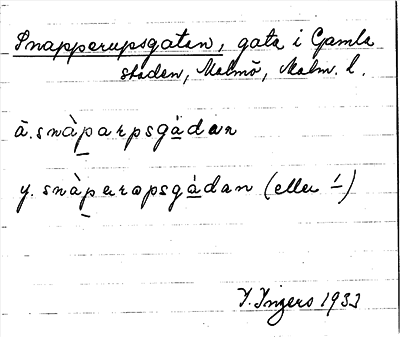 Snapperupsgatan, gata i Gamla
staden, Malmö, Malm. l.
ä. snàparpsgàdan
y. snàperopsgàdan (eller ᷄)
I. Ingers 1933